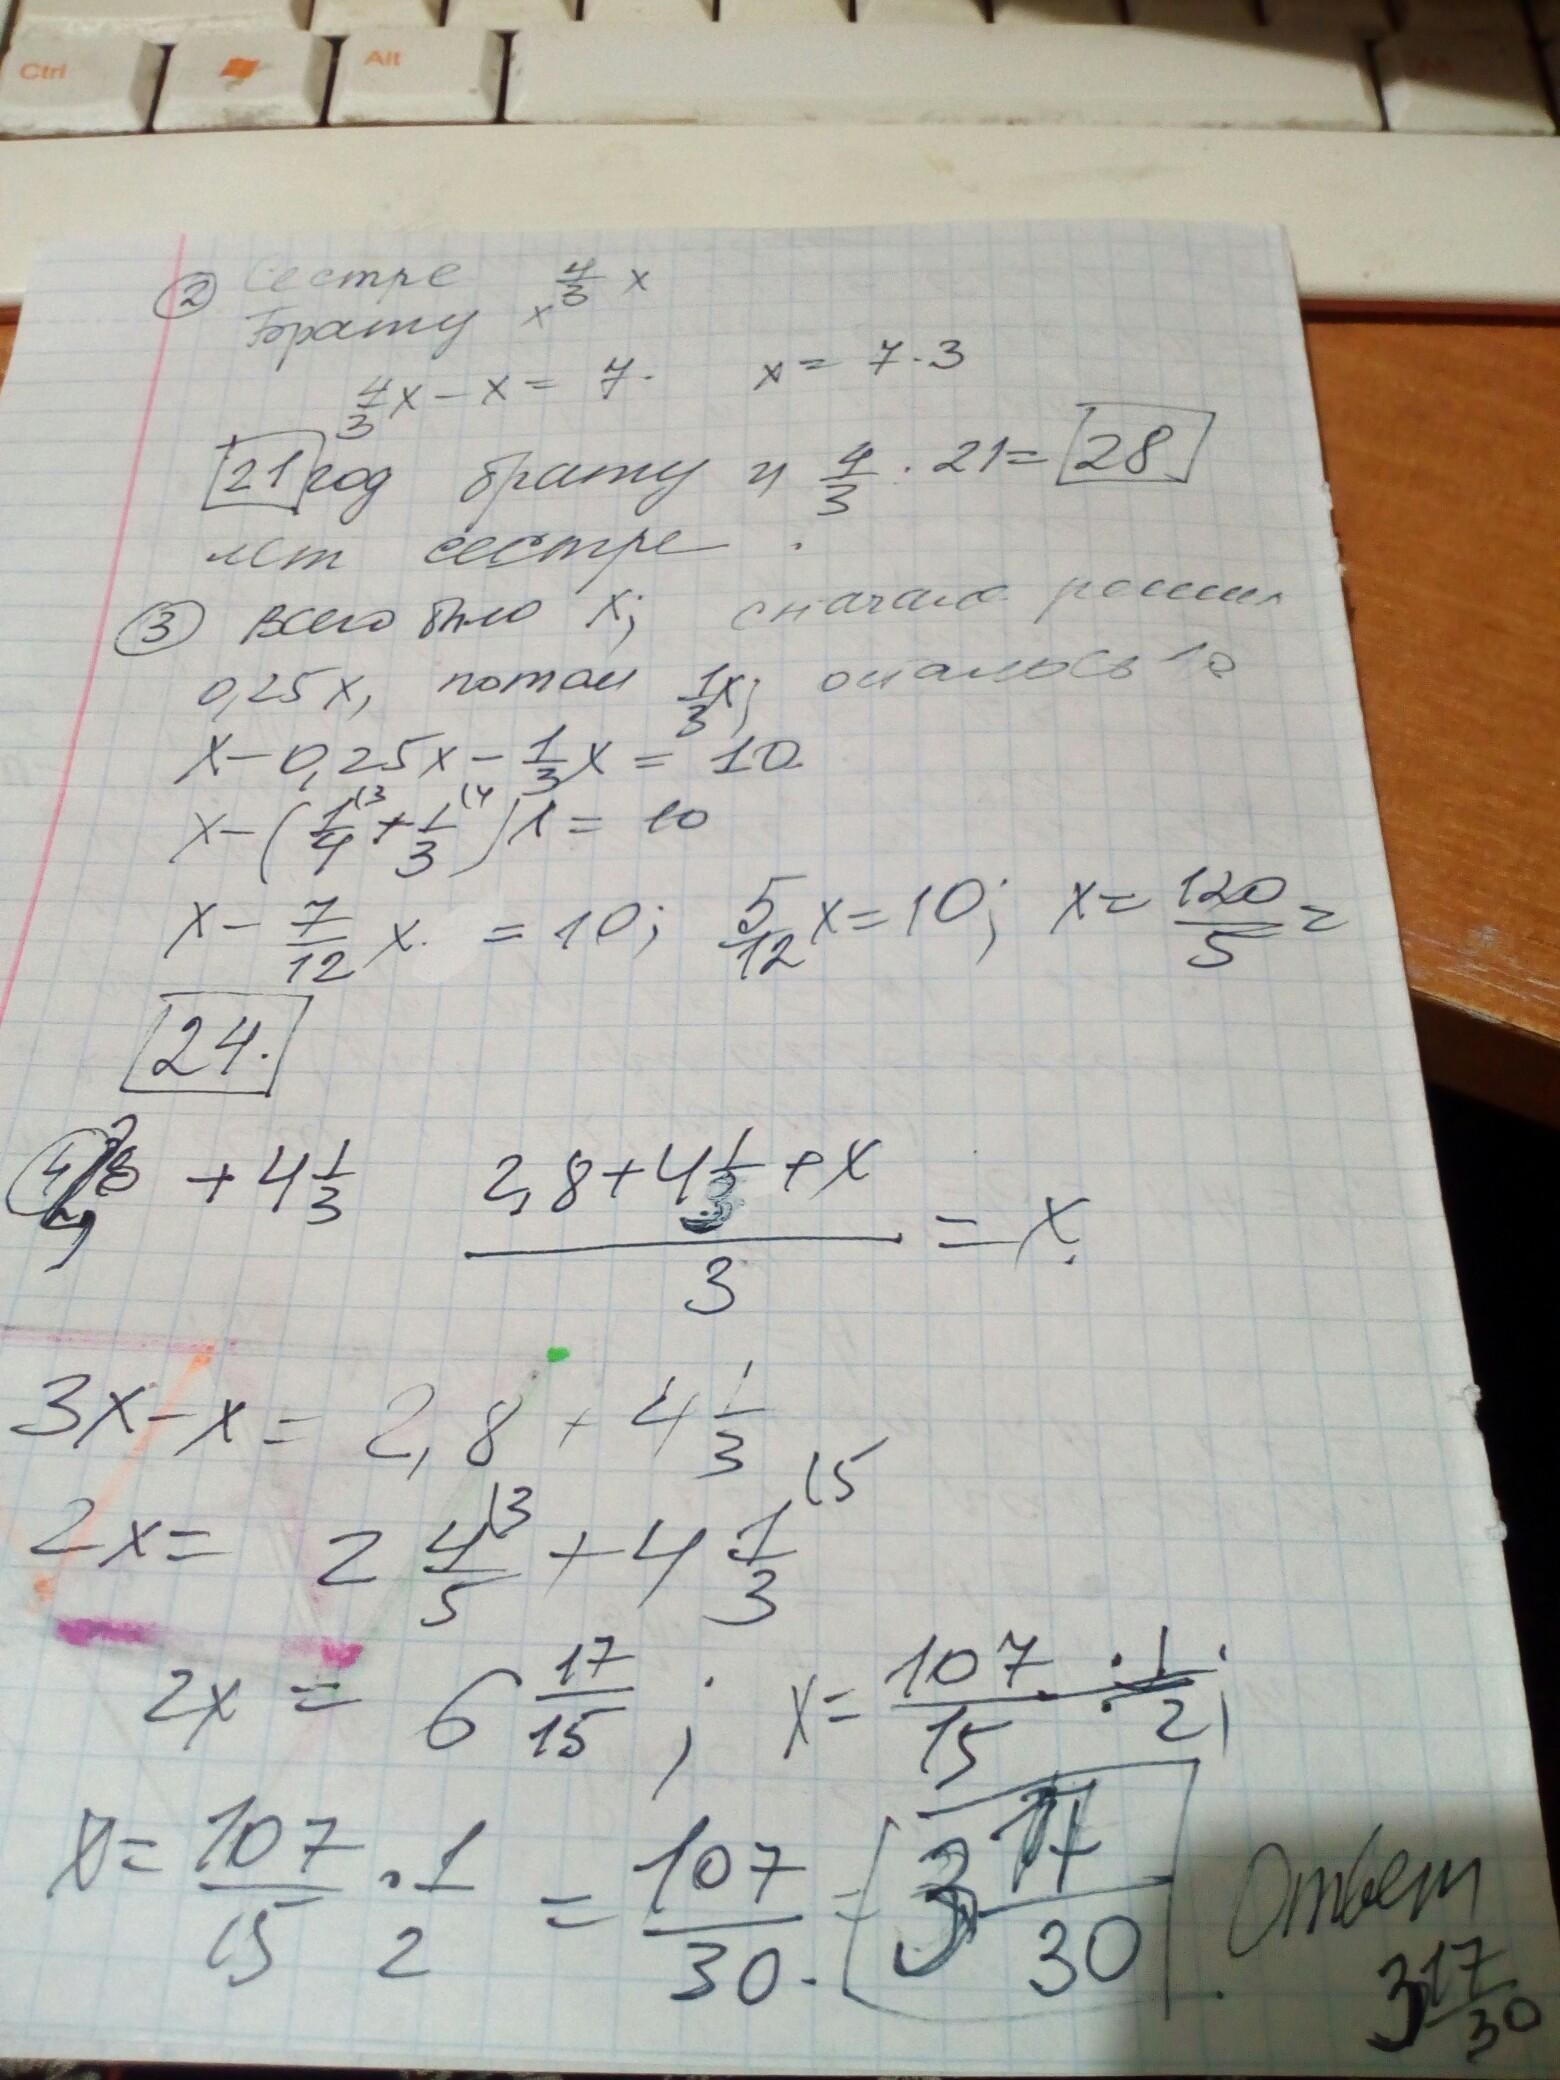 Ctrl Alt
② Сестре 4/3 x
Брату x
4/3x - x = 7. x = 7·3
21 год брату и 4/3 · 21 = 28
лет сестре.
③ Всего было x; сначала решил
0,25x, потом 1/3x; осталось 10
x - 0,25x - 1/3x = 10
x - (1/4 (3 + 1/3 (4)x = 10
x - 7/12 x. = 10; 5/12x = 10; x = 120/5 =
24.
④ + 4 1/3 (2,8 + 4 1/3 + x)/3 = x.
3x - x = 2,8 + 4 1/3
2x = 2 4/5 (3 + 4 1/3 (5
2x = 6 17/15; x = 107/15 : 1/2;
x = 107/15 · 1/2 = 107/30 = 3 17/30. Ответ
3 17/30